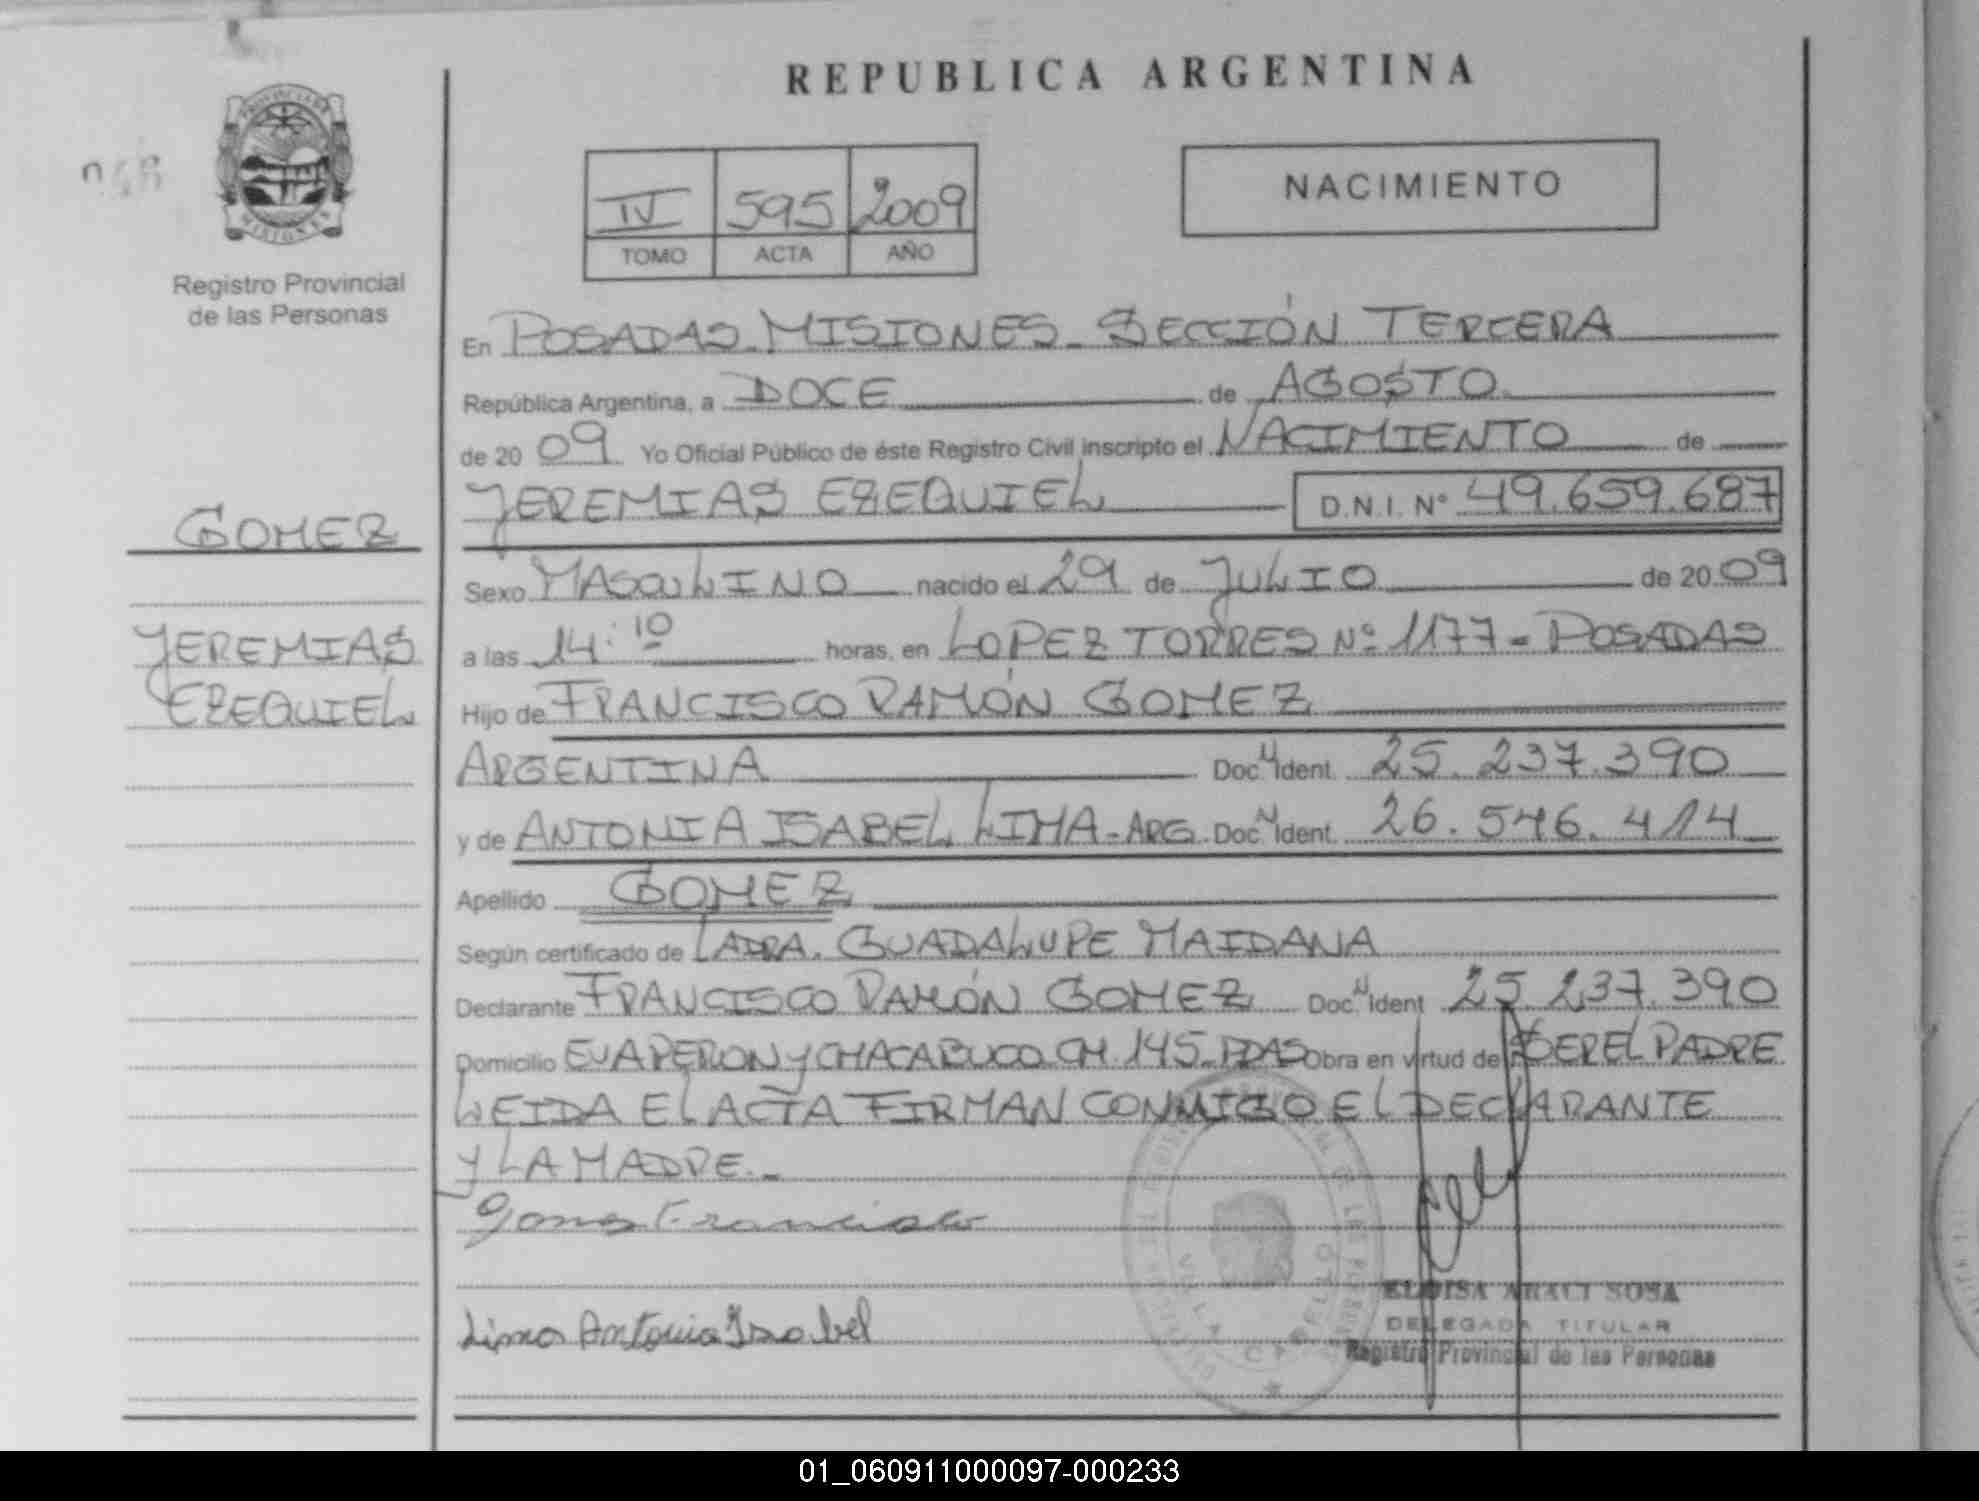 REPUBLICA ARGENTINA
PROVINCIA DE
MISIONES
Registro Provincial
de las Personas
IV 595 2009
TOMO ACTA AÑO
NACIMIENTO
En POSADAS_MISIONES_SECCIÓN TERCERA
República Argentina, a DOCE de AGOSTO.
de 20 09 Yo Oficial Público de éste Registro Civil inscripto el NACIMIENTO de
JEREMIAS EZEQUIEL D.N.I. Nº 49.659.687
GOMEZ
Sexo MASCULINO nacido el 29 de JULIO de 20 09
JEREMIAS
a las 14:10 horas, en LOPEZ TORRES Nº 1177 - POSADAS
EZEQUIEL
Hijo de FRANCISCO RAMÓN GOMEZ
ARGENTINA Doc. N Ident. 25.237.390
y de ANTONIA ISABEL LIMA - ARG. Doc. N Ident. 26.546.414
Apellido GOMEZ
Según certificado de LADRA. GUADALUPE MAIDANA
Declarante FRANCISCO RAMÓN GOMEZ Doc. N Ident 25.237.390
Domicilio EVA PERON y CHACABUCO CH. 145_PDAS Obra en virtud de SER EL PADRE
LEIDA EL ACTA FIRMAN CONMIGO EL DECLARANTE
Y LA MADRE._
Gomez Francisco
ELOISA ARACI SOSA
Lima Antonia Isabel
DELEGADA TITULAR
Registro Provincial de las Personas
01_060911000097-000233